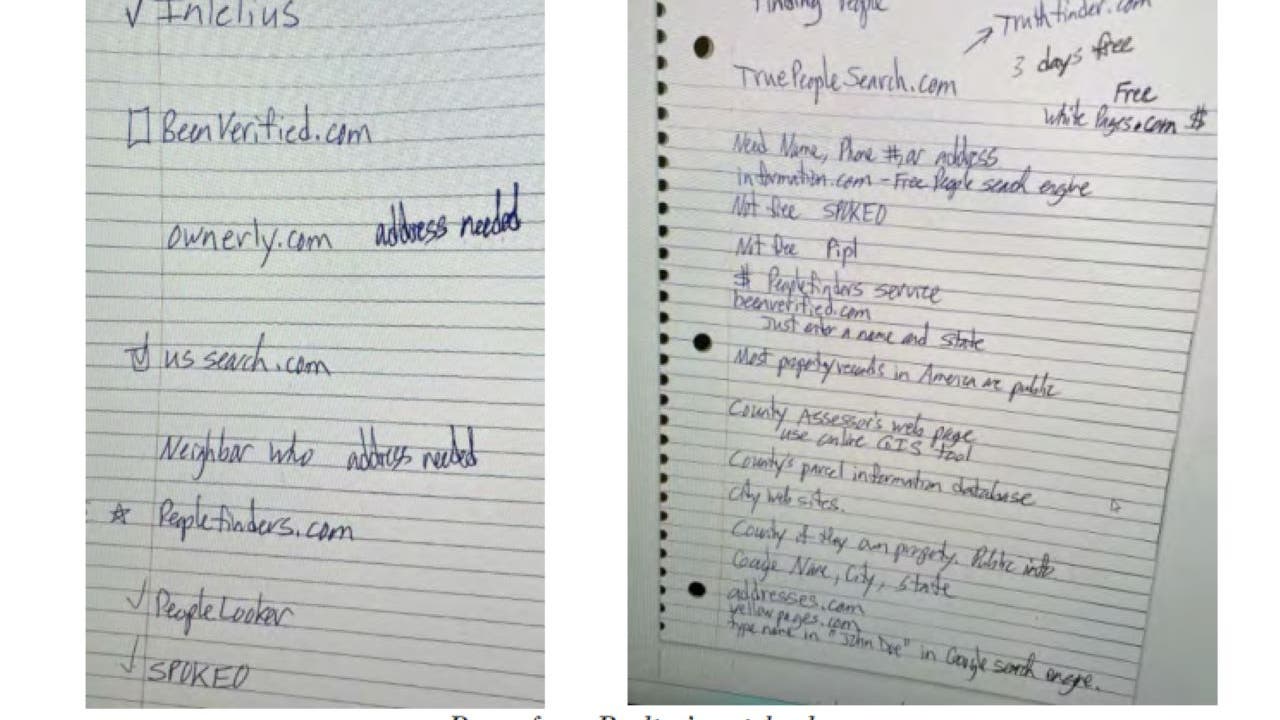 ✓ Intelius
☐ BeenVerified.com
ownerly.com address needed
☑ us search.com
Neighbor who address needed
☆ Peoplefinders.com
✓ PeopleLooker
✓ SPOKEO
Finding People
→ Truthfinder.com
3 days free
TruePeopleSearch.com
Free
White Pages.com $
Need Name, Phone #, or address
information.com - Free People search engine
Not free SPOKEO
Not free Pipl
$ Peoplefinders service
beenverified.com
Just enter a name and state
Most property records in America are public
County Assessor's web page
use online GIS tool
County's parcel information database
city web sites.
County if they own property. Public info
Google Name, City, State
addresses.com
yellowpages.com
type name in "John Doe" in Google search engine.